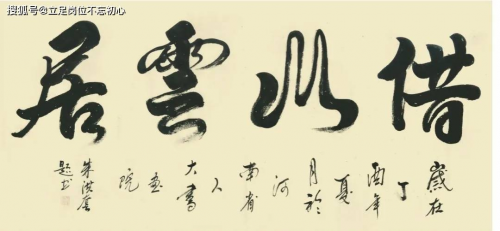 搜狐号@立足岗位不忘初心
借 雲居
歲在
丁
酉年
夏
月於
河
南省
人
大書
畫
院
朱洪
題